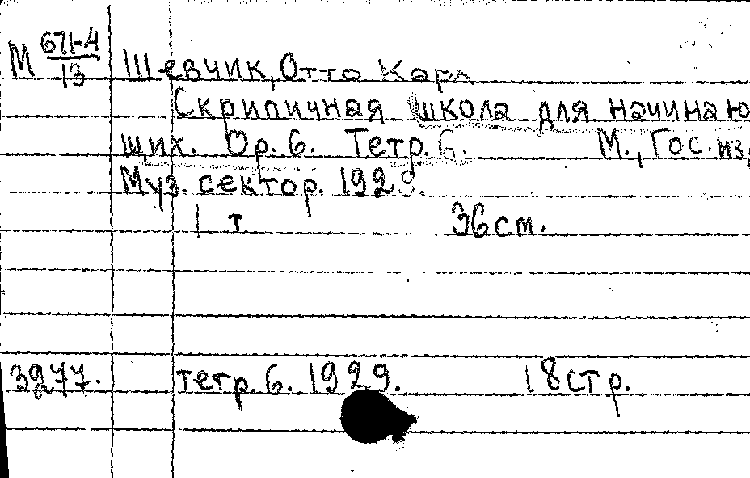 М 671-4/13 Шевчик, Отто Карл
Скрипичная школа для начинаю
щих. Ор. 6. Тетр. 6. М., Гос. из,
Муз. сектор. 1929.
1 т 36 см.
3277. тетр. 6. 1929. 18 стр.